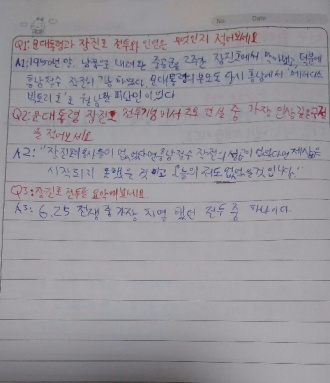 No. Date
Q1: 문대통령과 장진호 전투와 인연은 무엇인지 적어보세요
A1: 1950년 말, 남쪽으로 내려온 중공군을 2주간 장진호에서 막아냈는 덕분에
흥남철수 작전이 가능하였다. 문대통령의 부모도 당시 흥남에서 메러디스
빅토리호를 탔던 피난민이었다
Q2: 문대통령 장진호 전투기념비에서 연설 중 가장 인상깊은
을 적어보세요.
A2: "장진호의 용사들이 없었다면, 흥남철수 작전의 성공이 없었다면 제 삶은
시작되지 못했을 것이고 오늘의 저도 없었을 것입니다."
Q3: 장진호 전투를 요약해보세요
A3: 6.25 전쟁 중 가장 치열 했던 전투 중 하나이다.